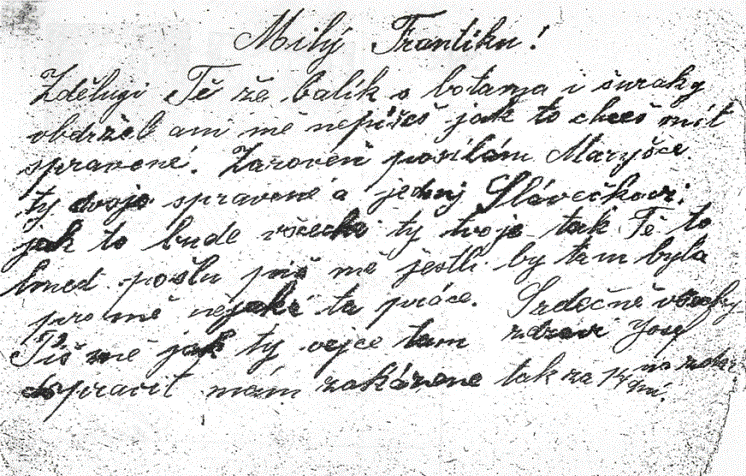 Milý Frantíku!
Zdělugi Tě že balík s botama i šuraky
obdržel ani mě nepíšeš jak to chceš mít
spravené. Zároveň posílám Maryšce
ty dvoje spravené a jedny Slávečkovi.
jak to bude všecko ty tvoje tak Tě to
hned pošlu piš mě jestli by tam byla
pro mě nějaké ta práce. Srdečně všecky
Piš mě jak ty vejce tam zdraví Josef
spracit mám zakázene tak za 14 dní.
na zdar